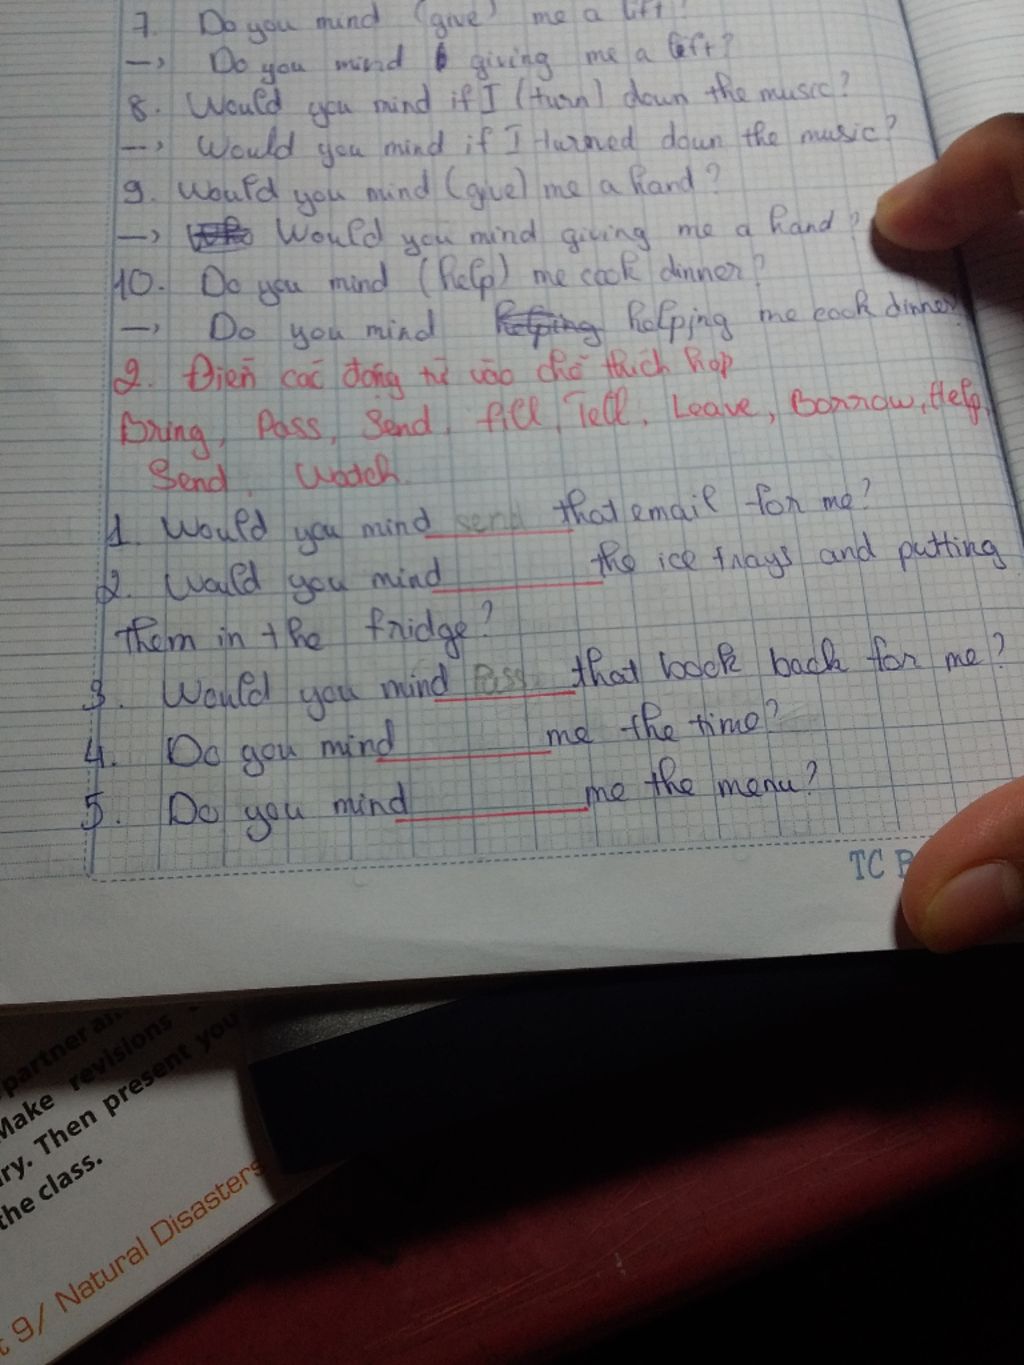 7. Do you mind (give) me a lift?
—> Do you mind giving me a lift?
8. Would you mind if I (turn) down the music?
—> Would you mind if I turned down the music?
9. Would you mind (give) me a hand?
—> Would you mind giving me a hand?
10. Do you mind (help) me cook dinner?
—> Do you mind helping helping me cook dinner
2. Điền các động từ vào chỗ thích hợp
Bring, Pass, Send, fill, Tell, Leave, Borrow, Help,
Send, Watch.
1. Would you mind send that email for me?
2. Would you mind the ice trays and putting
them in the fridge?
3. Would you mind Pass that book back for me?
4. Do you mind me the time?
5. Do you mind me the menu?
TC
partner
Make revisions
ry. Then present you
the class.
9/ Natural Disasters